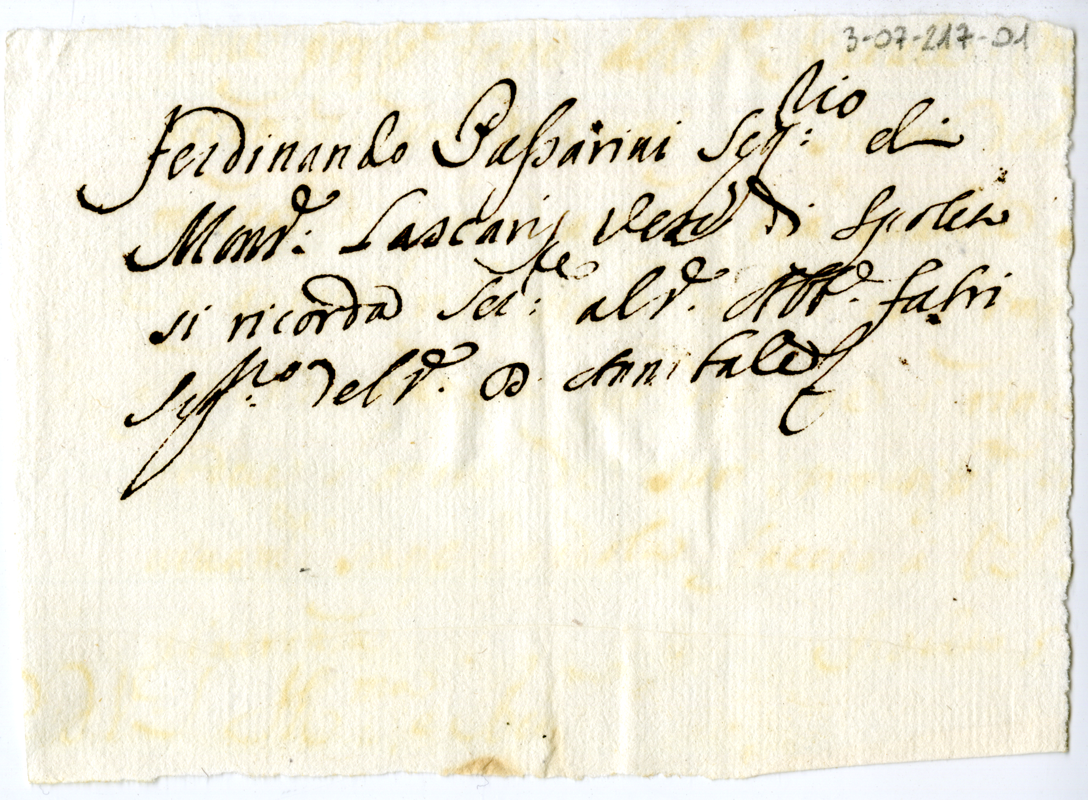 3-07-217-01
Ferdinando Passarini Seg.rio di
Monsr. Lascaris Vesco di Spoleto
si ricorda Ser.re al Sr. Abb.e Fabri
Seg.rio del Sr. D. Annibale